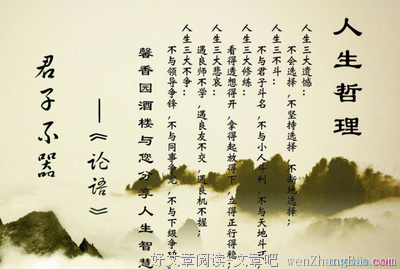 人生哲理
人生三大遗憾：
不会选择，不坚持选择，不断地选择；
人生三不斗：
不与君子斗名，不与小人斗利，不与天地斗
人生三大修练：
看得透想得开，拿得起放得下，立得正行得稳；
人生三大悲哀：
遇良师不学，遇良友不交，遇良机不握；
人生三大不争：
不与领导争锋，不与同事争宠，不与下级争
馨香园酒楼与您分享人生智慧
—《论语》
君子不器
好文章阅读：文章吧
wenZhangBa.com